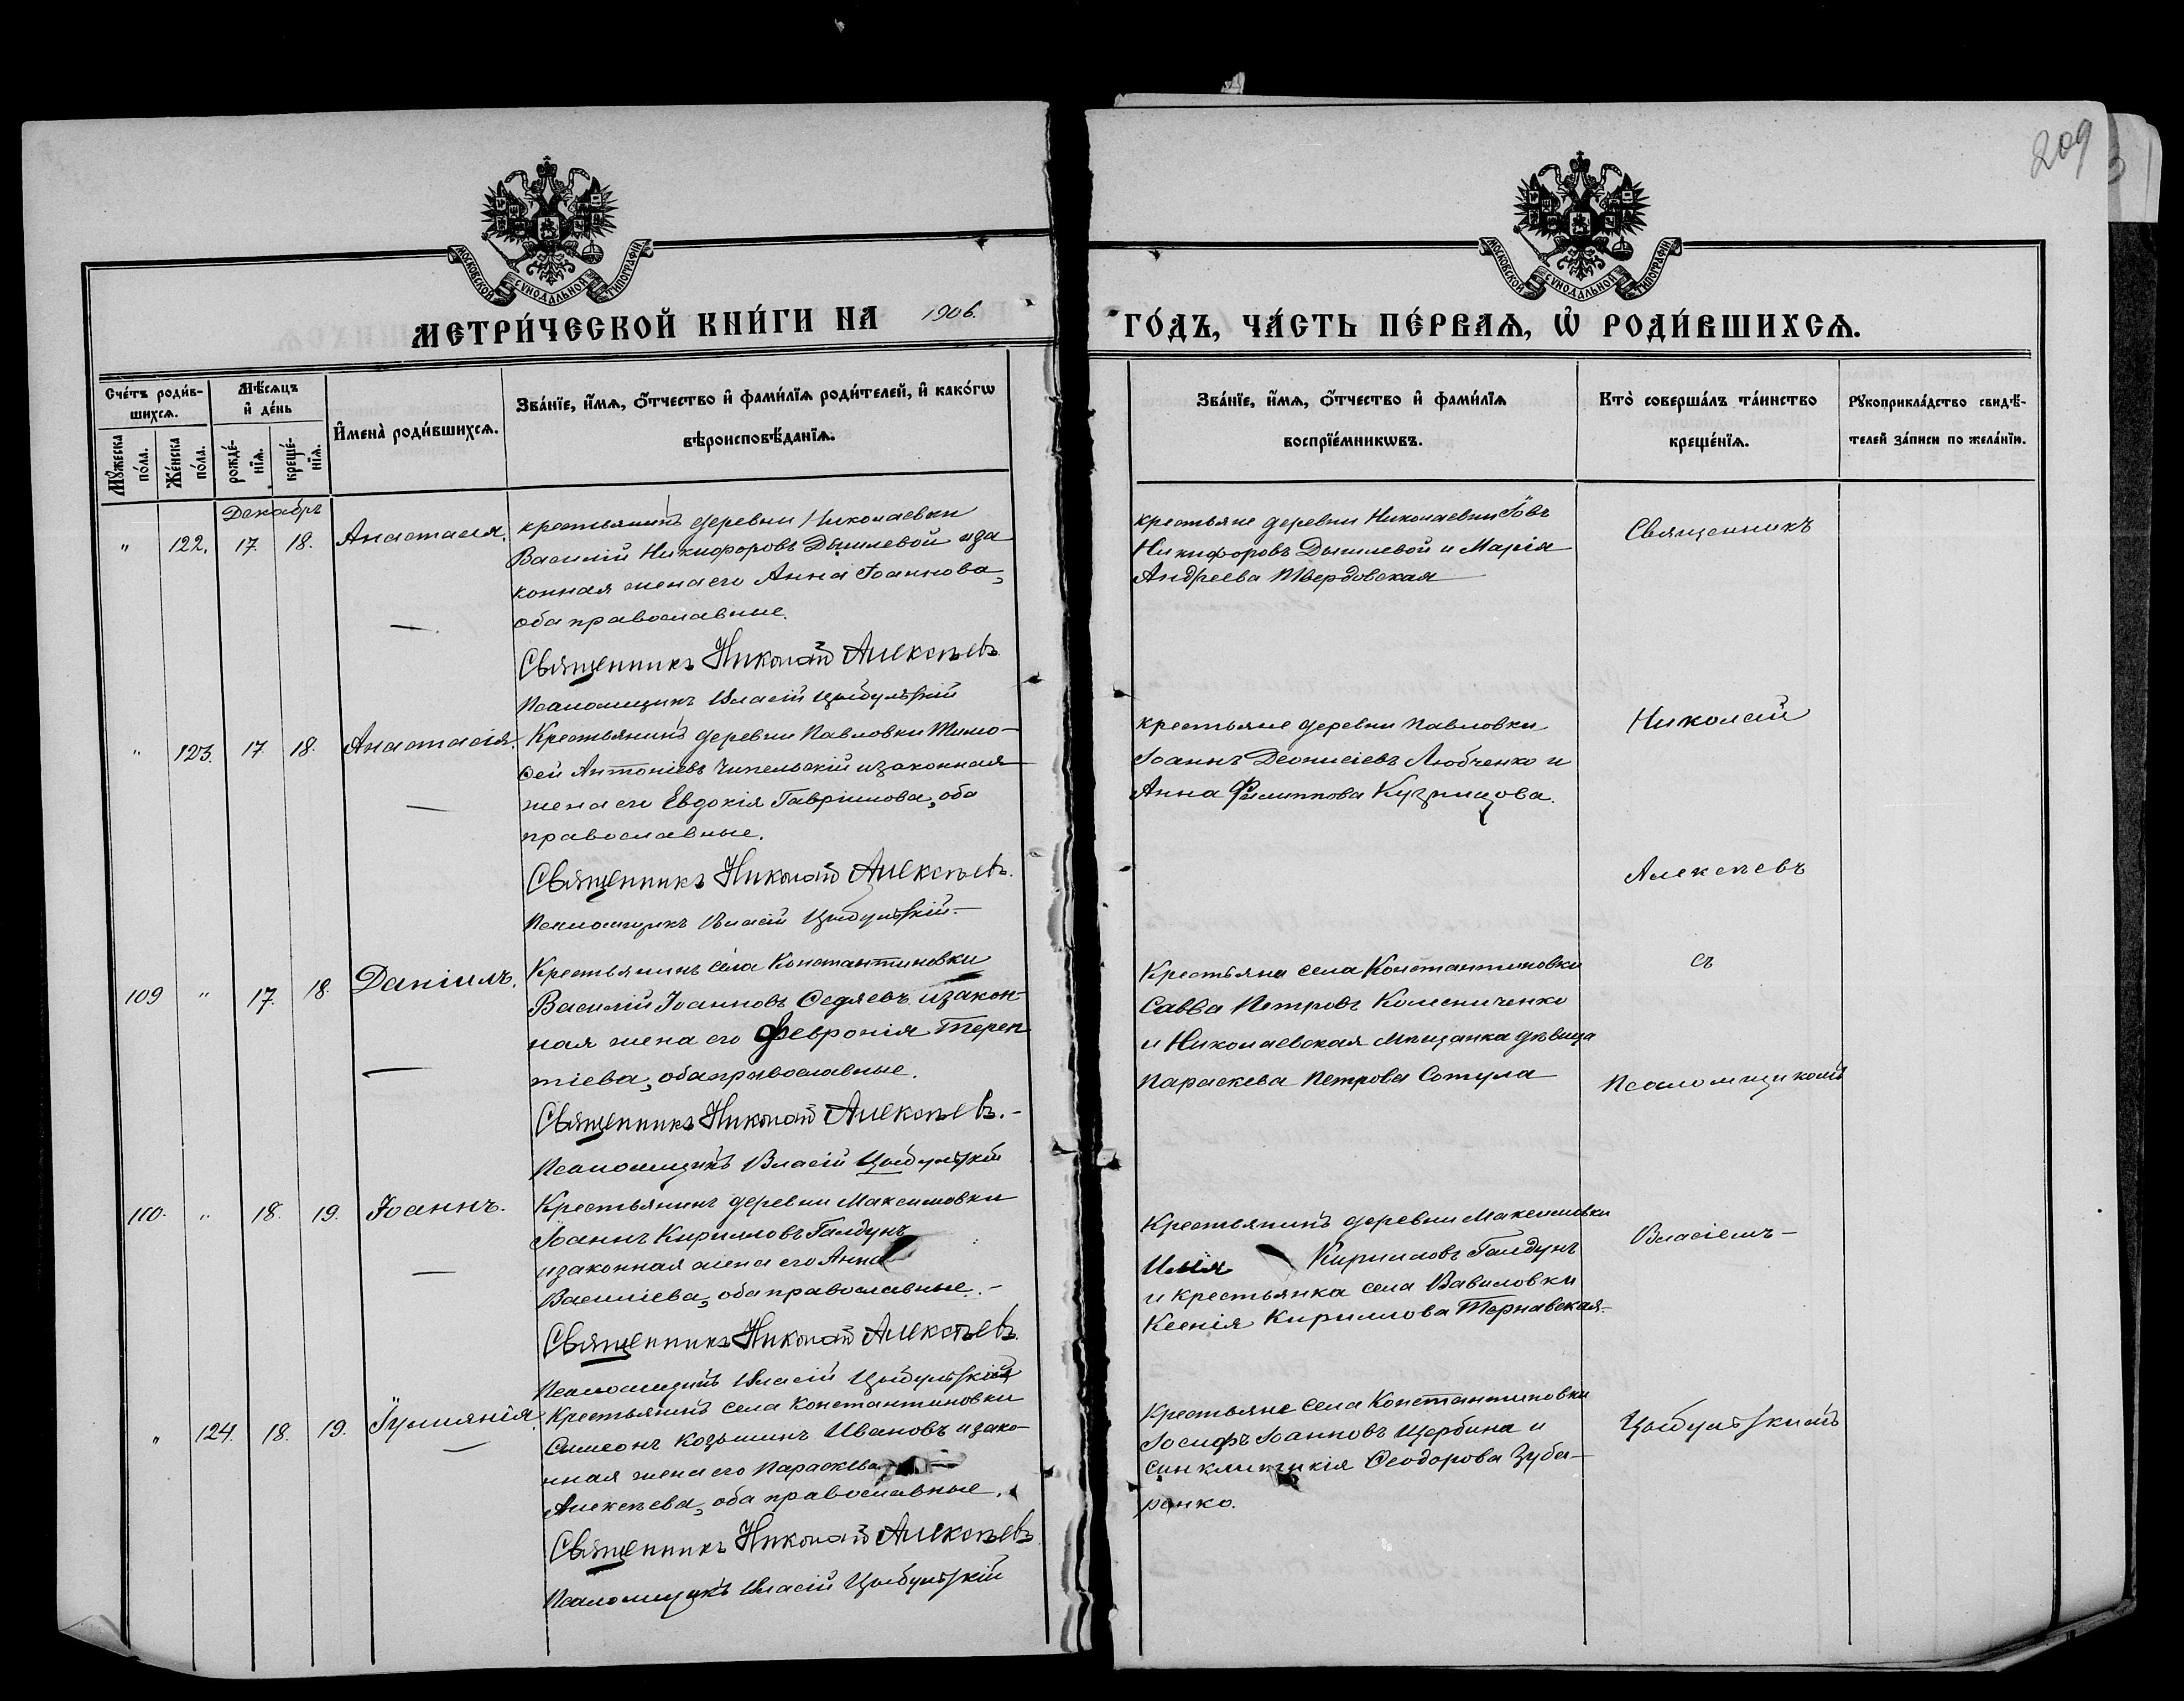 209
МОСКОВСКОЙ СѴНОДАЛЬНОЙ ТИПОГРАФІИ
МОСКОВСКОЙ СѴНОДАЛЬНОЙ ТИПОГРАФІИ
МЕТРИ́ЧЕСКОЙ КНИ́ГИ НА 1906. ГО́ДЪ, ЧА́СТЬ ПЕ́РВАѦ, Ѡ҆ РОДИ́ВШИХСѦ.
Сче́тъ роди́в-
шихсѧ.
Мꙋ́жеска по́ла.
Же́нска по́ла.
Мѣ́сѧцъ
и҆ де́нь
рожде́-
нїѧ.
креще́-
нїѧ.
И҆мена̀ роди́вшихсѧ.
Зва́нїе, и҆́мѧ, ѻ҆́тчество и҆ фами́лїѧ роди́телей, и҆ како́гѡ
вѣроисповѣ́данїѧ.
Зва́нїе, и҆́мѧ, ѻ҆́тчество и҆ фами́лїѧ
воспрїе́мникѡвъ.
Кто̀ соверша́лъ та́инство
креще́нїѧ.
Рꙋкоприкла́дство свидѣ́-
телей за́писи по жела́нїю.
Декабрь
" 122. 17. 18. Анастасія.
крестьянинъ деревни Николаевки
Василій Никифоровъ Дышлевой и за
конная жена его Анна Іоаннова,
оба православные.
Священникъ Николай Алексѣевъ
Псаломщикъ Власій Цыбульскій
крестьяне деревни Николаевки Іовъ
Никифоровъ Дышлевой и Марія
Андреева Твердовская
Священникъ
" 123. 17. 18. Анастасія.
Крестьянинъ деревни Павловки Тимо-
ѳей Антоніевъ Чипельскій и законная
жена его Евдокія Гавріилова, оба
православные.
Священникъ Николай Алексѣевъ.
Псаломщикъ Власій Цыбульскій.
крестьяне деревни Павловки
Іоаннъ Деонисіевъ Любченко и
Анна Филиппова Кузнецова.
Николай
Алексѣевъ
109 " 17. 18. Даніилъ.
Крестьянинъ села Константиновки
Василій Іоанновъ Ѳедяевъ и закон-
ная жена его Февронія Терен
тіева, оба православные.
Священникъ Николай Алексѣевъ.
Псаломщикъ Власій Цыбульскій
Крестьяне села Константиновки
Савва Петровъ Колениченко
и Николаевская мѣщанка дѣвица
Параскева Петрова Сотула
съ
Псаломщикомъ
110. " 18. 19. Іоаннъ.
Крестьянинъ деревни Максимовки
Іоаннъ Кирилловъ Галдунъ
и законная жена его Анна
Василіева, оба православные.
Священникъ Николай Алексѣевъ.
Псаломщикъ Власій Цыбульскій
Крестьянинъ деревни Максимовки
Илія Кирилловъ Галдунъ
и крестьянка села Вавиловки
Ксенія Кириллова Тернавская
Власіемъ
" 124. 18. 19. Іуліянія.
Крестьянинъ села Константиновки
Симеонъ Козьминъ Ивановъ и зако-
нная жена его Параскева
Алексѣева, оба православные.
Священникъ Николай Алексѣевъ.
Псаломщикъ Власій Цыбульскій
Крестьяне села Константиновки
Іосифъ Іоанновъ Щербина и
Синклитикія Ѳеодорова Зуба-
ренко.
Цыбульскимъ